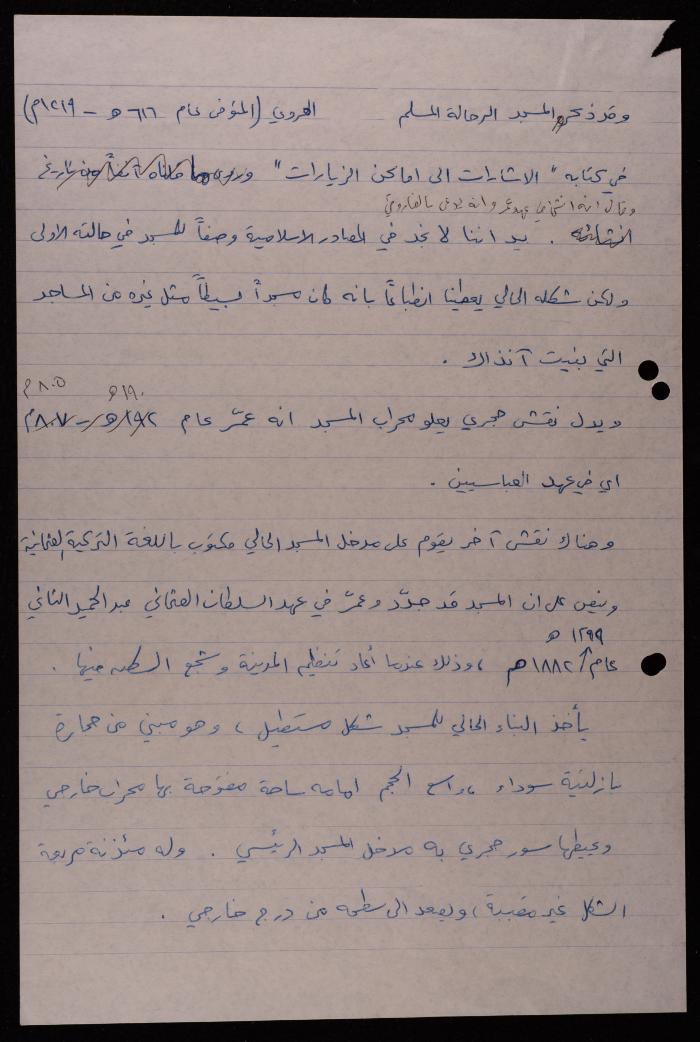 وقد ذكر المسجد الرحالة المسلم الهروي (المتوفى عام ٦١٦ هـ - ١٢١٩م)
في كتابه "الاشارات الى اماكن الزيارات"
وقال انه انشئ في عهد عمر وانه يدعى بالفاروقي
. بيد اننا لا نجد في المصادر الاسلامية وصفاً للمسجد في حالته الاولى
ولكن شكله الحالي يعطينا انطباعاً بانه كان مسجداً بسيطاً مثل غيره من المساجد
التي بنيت آنذاك .
١٩٠ هـ ٨٠٥ م
ويدل نقش حجري يعلو محراب المسجد انه عمّر عام ١٩٢ هـ - ٨٠٧م
اي في عهد العباسيين .
وهناك نقش آخر يقوم على مدخل المسجد الحالي مكتوب باللغة التركية العثمانية
وينص على ان المسجد قد جدّد وعمرّ في عهد السلطان العثماني عبد الحميد الثاني
١٢٩٩ هـ
عام / ١٨٨٢م ، وذلك عندما أعاد تنظيم المدينة وشجع السكنى فيها .
يأخذ البناء الحالي للمسجد شكل مستطيل ، وهو مبني من حجارة
بازلتية سوداء ، واسع الحجم امامه ساحة مفتوحة بها محراب خارجي
ويحيطها سور حجري به مدخل المسجد الرئيسي . وله مئذنة مربعة
الشكل غير مقببة ، ويصعد الى سطحه من درج خارجي .